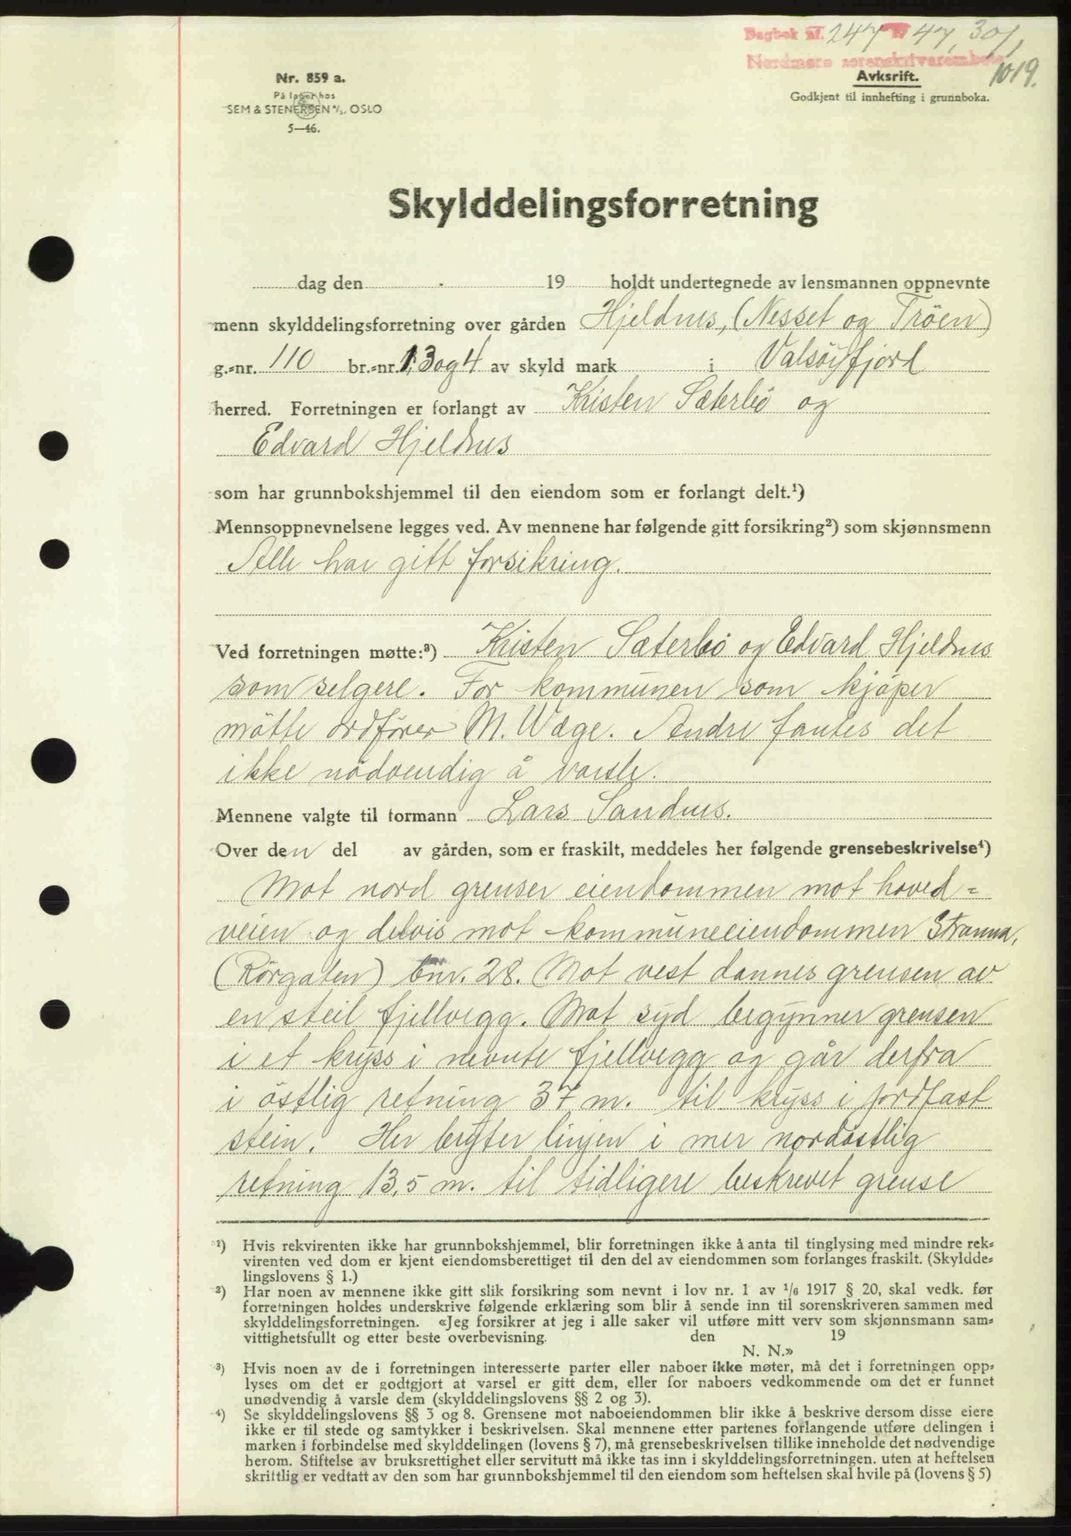 Dagbok nr. 247 19 47, 30/1
Nordmøre sorenskriverembete
1019.
Nr. 859 a.
På lager hos
SEM & STENERSEN A/S. OSLO
5—46.
Avskrift.
Godkjent til innhefting i grunnboka.
Skylddelingsforretning
dag den 19 holdt undertegnede av lensmannen oppnevnte
menn skylddelingsforretning over gården Hjeldnes, (Nesset og Trøen)
g.-nr. 110 br.-nr. 1,3 og 4 av skyld mark i Valsøyfjord
herred. Forretningen er forlangt av Kristen Sæterbö og
Edvard Hjeldnes
som har grunnbokshjemmel til den eiendom som er forlangt delt.¹)
Mennsoppnevnelsene legges ved. Av mennene har følgende gitt forsikring²) som skjønnsmenn
Alle har gitt forsikring.
Ved forretningen møtte:³) Kristen Sæterbö og Edvard Hjeldnes
som selgere. For kommunen som kjöper
mötte ordförer M. Wæge. Andre fantes det
ikke nödvendig å varsle.
Mennene valgte til formann Lars Sandnes.
Over den del av gården, som er fraskilt, meddeles her følgende grensebeskrivelse⁴)
Mot nord grenser eiendommen mot hoved=
veien og delvis mot kommuneeiendommen Stranna,
(Rörgaten) bnr. 28. Mot vest dannes grensen av
en steil fjellvegg. Mot syd begynner grensen
i et kryss i nevnte fjellvegg og går derfra
i östlig retning 37 m. til kryss i jordfast
stein. Her bryter linjen i mer nordöstlig
retning 13,5 m. til tidligere beskrevet grense
¹) Hvis rekvirenten ikke har grunnbokshjemmel, blir forretningen ikke å anta til tinglysing med mindre rek-
virenten ved dom er kjent eiendomsberettiget til den del av eiendommen som forlanges fraskilt. (Skyldde-
lingslovens § 1.)
²) Har noen av mennene ikke gitt slik forsikring som nevnt i lov nr. 1 av 1/6 1917 § 20, skal vedk. før
forretningen holdes underskrive følgende erklæring som blir å sende inn til sorenskriveren sammen med
skylddelingsforretningen. «Jeg forsikrer at jeg i alle saker vil utføre mitt verv som skjønnsmann sam-
vittighetsfullt og etter beste overbevisning. den 19
N. N.»
³) Hvis noen av de i forretningen interesserte parter eller naboer ikke møter, må det i forretningen opp-
lyses om det er godtgjort at varsel er gitt dem, eller for naboers vedkommende om det er funnet
unødvendig å varsle dem (skylddelingslovens §§ 2 og 3).
⁴) Se skylddelingslovens §§ 3 og 8. Grensene mot naboeiendommen blir ikke å beskrive dersom disse eiere
ikke er til stede og samtykker i beskrivelsen. Skal mennene etter partenes forlangende utføre delingen i
marken i forbindelse med skylddelingen (lovens § 7), må grensebeskrivelsen tillike inneholde det nødvendige
herom. Stiftelse av bruksrettighet eller servitutt må ikke tas inn i skylddelingsforretningen. uten at heftelsen
skriftlig er vedtatt av den som har grunnbokshjemmel til den eiendom som heftelsen skal hvile på (lovens § 5)